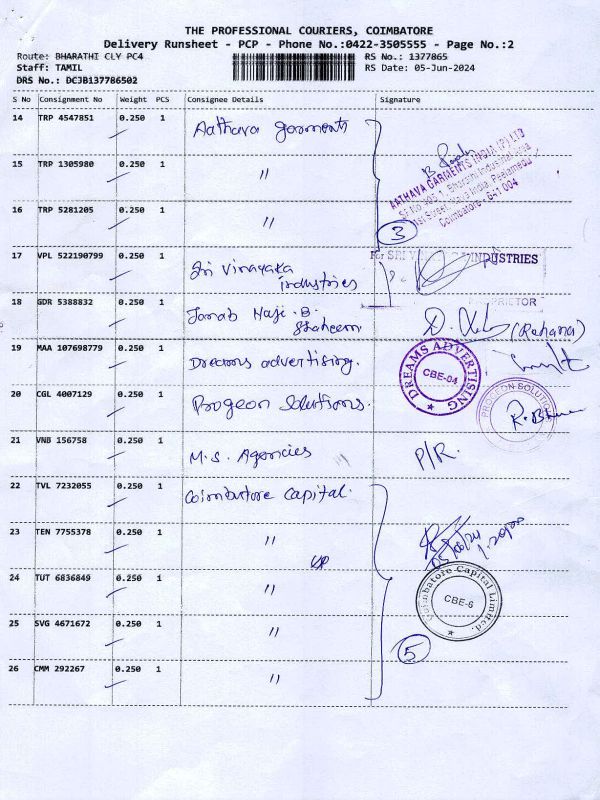 THE PROFESSIONAL COURIERS, COIMBATORE
Delivery Runsheet - PCP - Phone No.:0422-3505555 - Page No.:2
Route: BHARATHI CLY PC4 RS No.: 1377865
Staff: TAMIL RS Date: 05-Jun-2024
DRS No.: DCJB137786502
S No Consignment No Weight PCS Consignee Details Signature
14 TRP 4547851 0.250 1 Aathava garments
15 TRP 1305980 0.250 1 "
AATHAVA GARMENTS INDIA (P) LTD
Coimbatore - 641 004
16 TRP 5281205 0.250 1 "
3
17 VPL 522190799 0.250 1 Sri Vinayaka industries
For SRI INDUSTRIES
18 GDR 5388832 0.250 1 Janab Haji . B. Shaheem (Rahana)
19 MAA 107698779 0.250 1 Dreams advertising.
DREAMS ADVERTISING CBE-04
20 CGL 4007129 0.250 1 Progeon Solutions.
PROGEON SOLUTIONS
21 VNB 156758 0.250 1 M.S. Agencies P/R.
22 TVL 7232055 0.250 1 Coimbatore Capital.
23 TEN 7755378 0.250 1 "
24 TUT 6836849 0.250 1 "
Coimbatore Capital Limited. CBE-6
25 SVG 4671672 0.250 1 "
5
26 CMM 292267 0.250 1 "